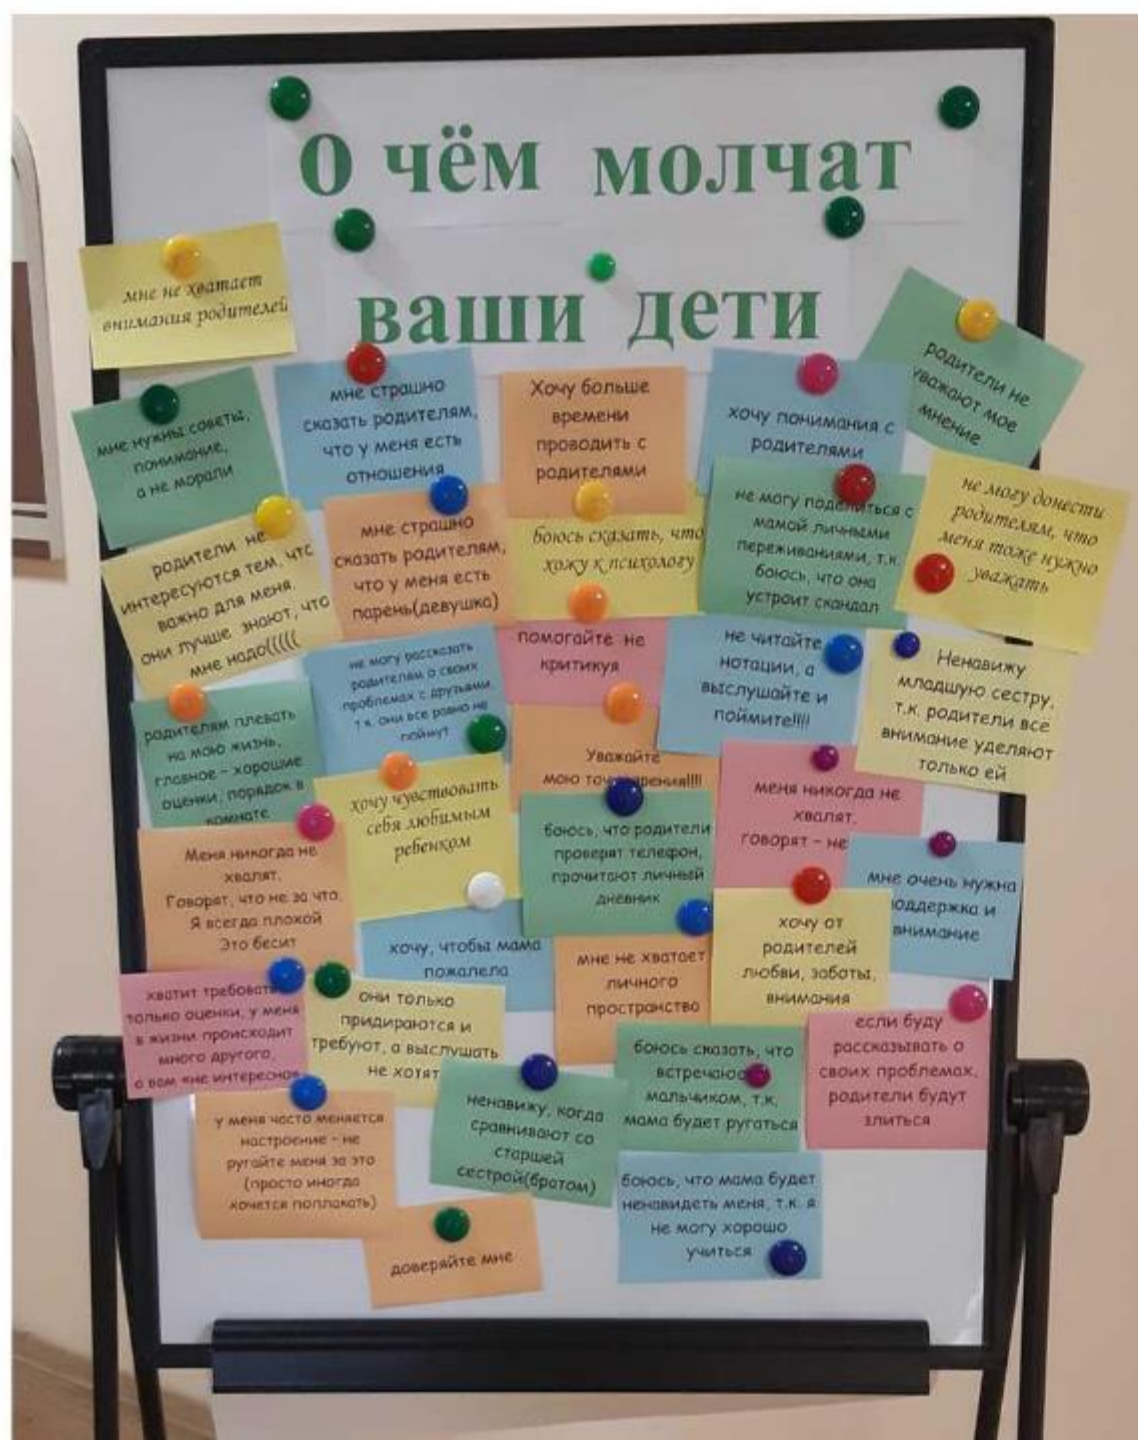 О чём молчат
ваши дети
мне не хватает
внимания родителей
родители не
уважают мое
мнение
мне нужны советы,
понимание,
а не морали
мне страшно
сказать родителям,
что у меня есть
отношения
Хочу больше
времени
проводить с
родителями
хочу понимания с
родителями
родители не
интересуются тем, что
важно для меня.
они лучше знают, что
мне надо(((((
мне страшно
сказать родителям,
что у меня есть
парень(девушка)
боюсь сказать, что
хожу к психологу
не могу поделиться с
мамой личными
переживаниями, т.к.
боюсь, что она
устроит скандал
не могу донести
родителям, что
меня тоже нужно
уважать
не могу рассказать
родителям о своих
проблемах с друзьями,
т.к. они все равно не
поймут
помогайте не
критикуя
не читайте
нотации, а
выслушайте и
поймите!!!!
Ненавижу
младшую сестру,
т.к. родители все
внимание уделяют
только ей
родителям плевать
на мою жизнь,
главное – хорошие
оценки, порядок в
комнате
хочу чувствовать
себя любимым
ребенком
Уважайте
мою точку зрения!!!!
меня никогда не
хвалят.
говорят – не
Меня никогда не
хвалят.
Говорят, что не за что.
Я всегда плохой
Это бесит
боюсь, что родители
проверят телефон,
прочитают личный
дневник
мне очень нужна
поддержка и
внимание
хочу, чтобы мама
пожалела
мне не хватает
личного
пространство
хочу от
родителей
любви, заботы,
внимания
хватит требовать
только оценки, у меня
в жизни происходит
много другого,
а вам «не интересно»
они только
придираются и
требуют, а выслушать
не хотят
боюсь сказать, что
встречаюсь
мальчиком, т.к.
мама будет ругаться
если буду
рассказывать о
своих проблемах,
родители будут
злиться
у меня часто меняется
настроение – не
ругайте меня за это
(просто иногда
хочется поплакать)
ненавижу, когда
сравнивают со
старшей
сестрой(братом)
боюсь, что мама будет
ненавидеть меня, т.к. я
не могу хорошо
учиться
доверяйте мне